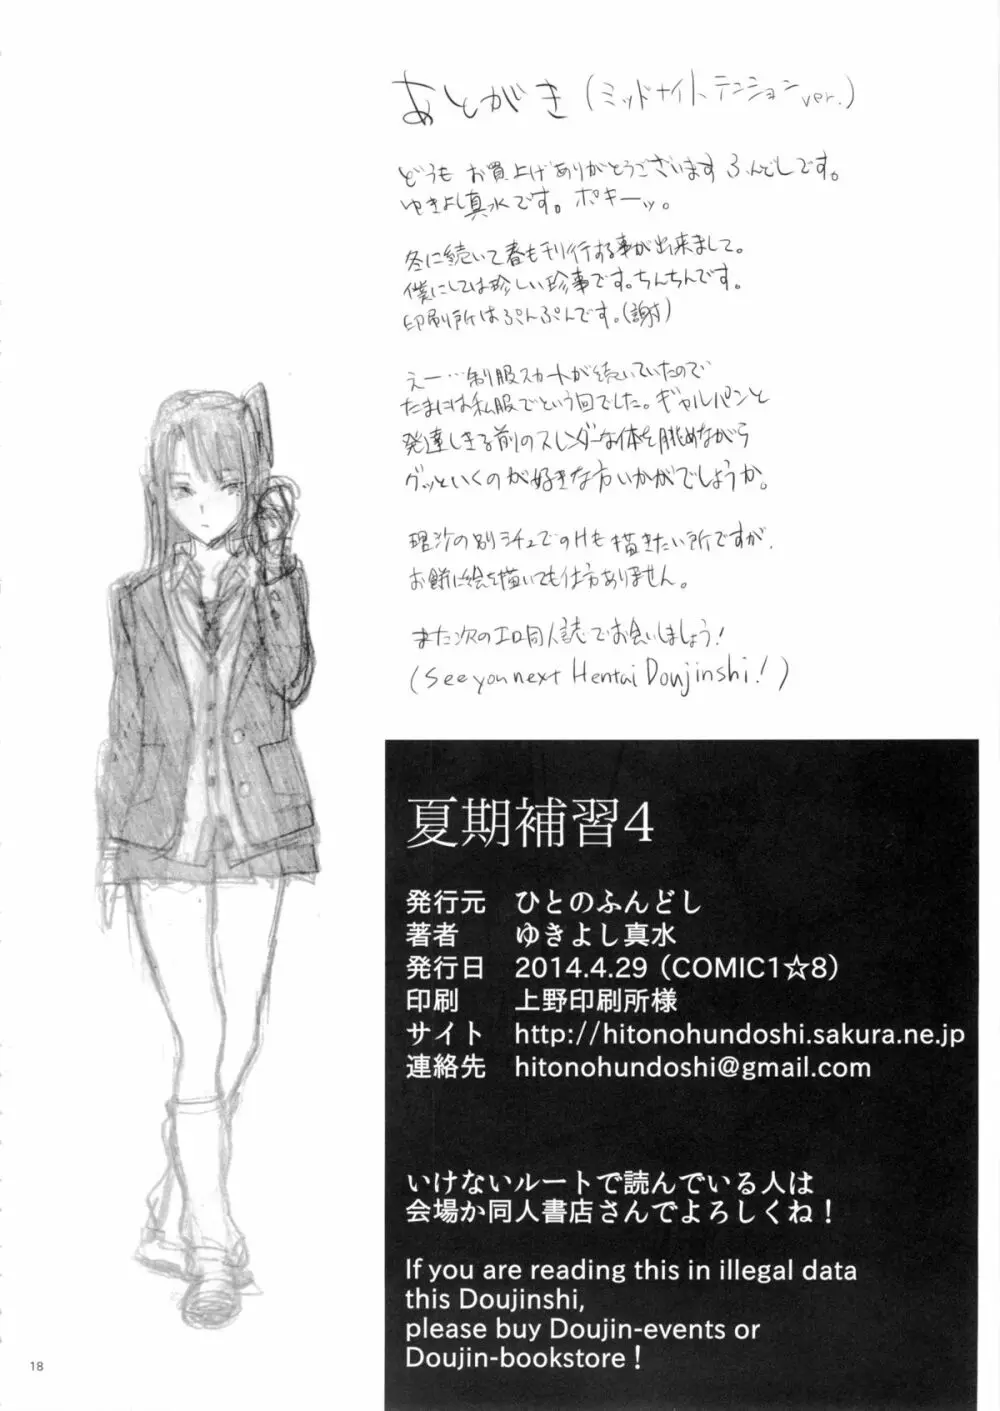 あとがき (ミッドナイトテンションver.)
どうも お買上げありがとうございます ふんどしです。
ゆきよし真水です。ポキーッ。
冬に続いて春も刊行する事が出来まして。
僕にしては珍しい珍事です。ちんちんです。
印刷所はぷんぷんです。(謝)
えー…制服スカートが続いていたので
たまには私服でという回でした。ギャルパンと
発達しきる前のスレンダーな体を眺めながら
グッといくのが好きな方いかがでしょうか。
理沙の別シチュでのHも描きたい所ですが、
お餅に絵を描いても仕方ありません。
また次のエロ同人誌でお会いしましょう!
(See you next Hentai Doujinshi!)
夏期補習4
発行元 ひとのふんどし
著者 ゆきよし真水
発行日 2014.4.29(COMIC1☆8)
印刷 上野印刷所様
サイト http://hitonohundoshi.sakura.ne.jp
連絡先 hitonohundoshi@gmail.com
いけないルートで読んでいる人は
会場か同人書店さんでよろしくね!
If you are reading this in illegal data
this Doujinshi,
please buy Doujin-events or
Doujin-bookstore!
18